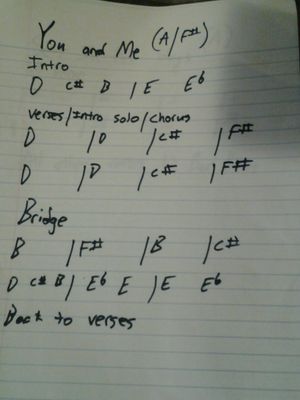 You and Me (A/F#)
Intro
D C# B / E Eb
verses/Intro solo/Chorus
D / D / C# / F#
D / D / C# / F#
Bridge
B / F# / B / C#
D C# B / Eb E / E Eb
Back to verses